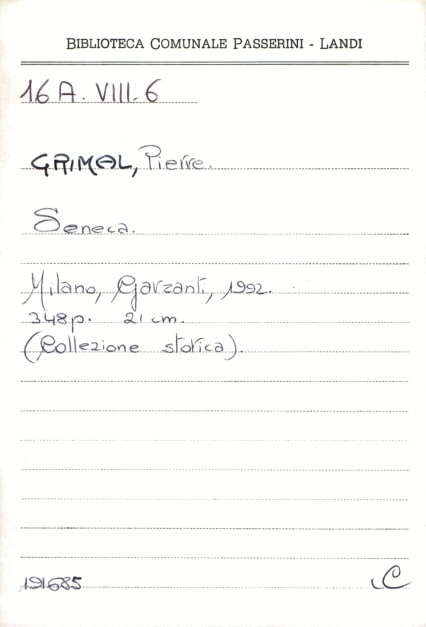 BIBLIOTECA COMUNALE PASSERINI - LANDI
16 A. VIII. 6
GRIMAL, Pierre.
Seneca.
Milano, Garzanti, 1992.
348 p. 21 cm.
(Collezione storica).
191685 C